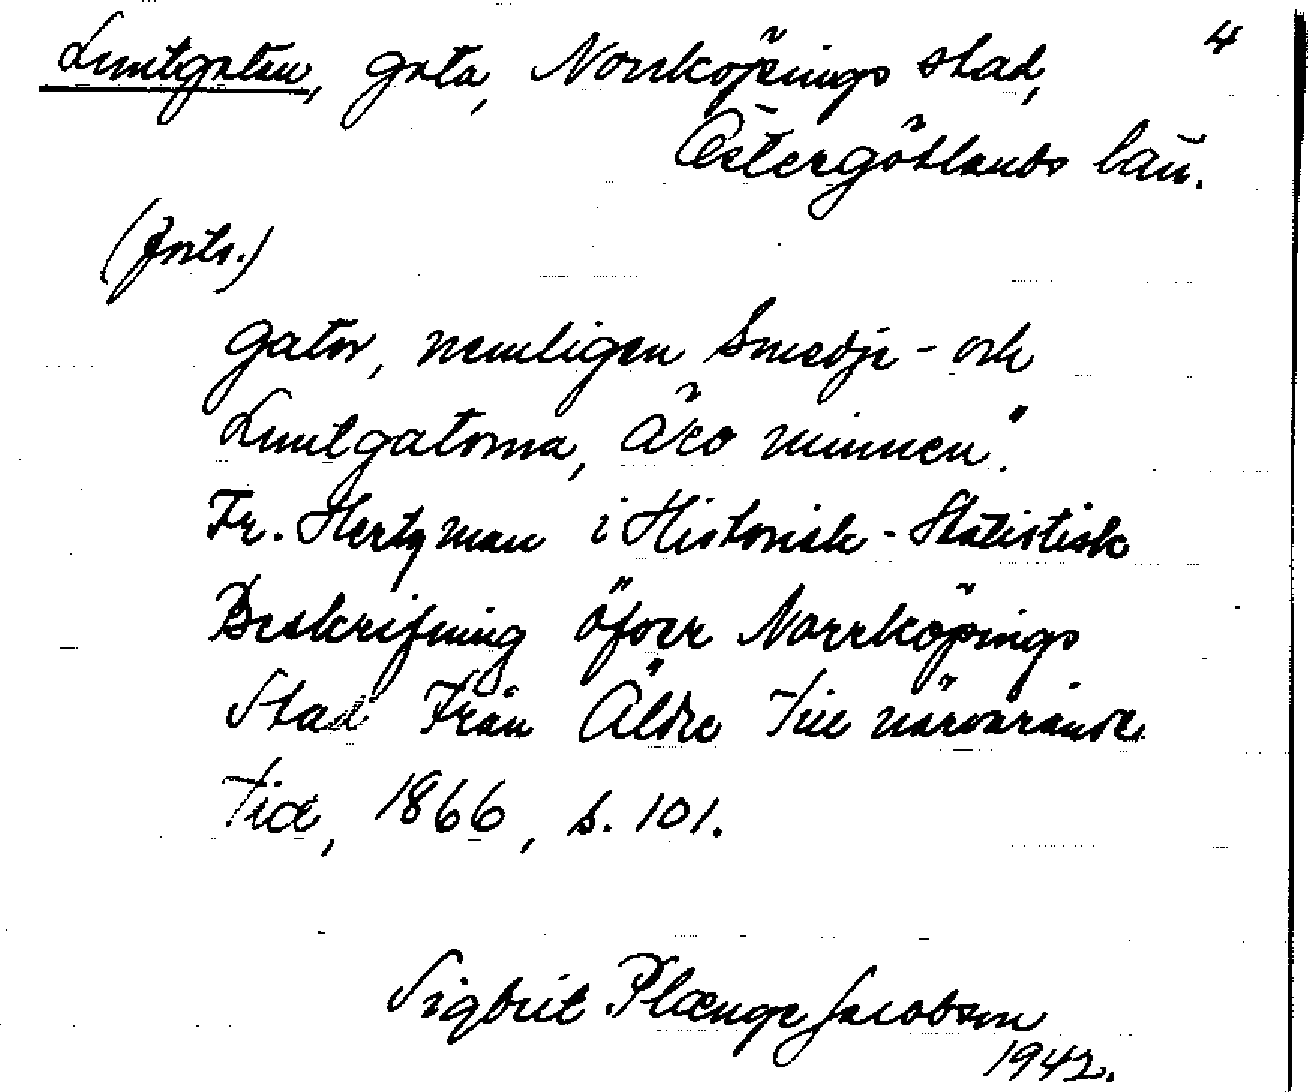 Luntgatan, gata, Norrköpings stad, 4
Östergötlands län.
(forts.)
gator, nemligen Smedje- och
Luntgatorna, äro minnen".
Fr. Hertzman i Historisk-Statistisk
Beskrifning öfver Norrköpings
Stad Från Äldre till närvarande
Tid, 1866, s. 101.
Sigbrit Plænge Jacobson
1942.